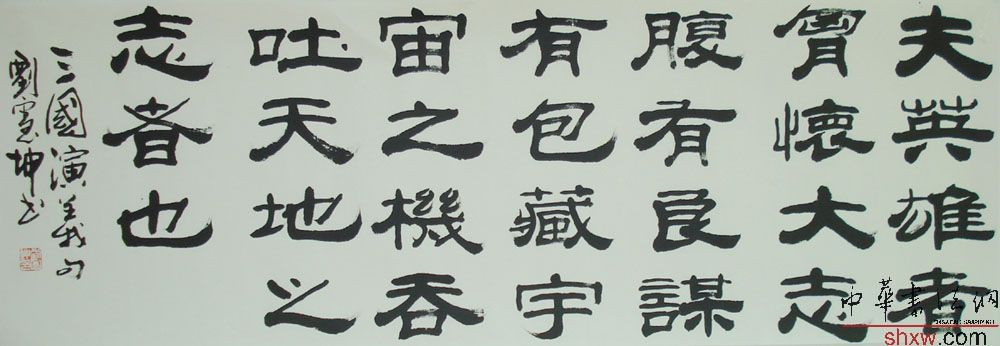 夫英雄者
胷懷大志
腹有良謀
有包藏宇
宙之機吞
吐天地之
志者也
三國演義句
劉憲坤书
中華書法網
shxw.com